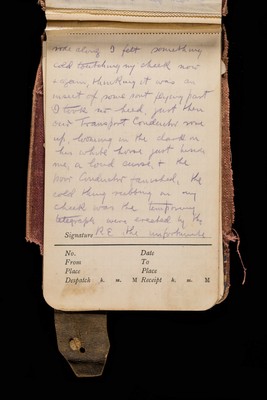 rode along I felt something
cold touching my cheek now
again, thinking it was an
insect of some sort flying past
I took no heed, just then
our Transport Conductor rode
up, looming in the dark on
his white horse just behind
me, a loud curse, & the
poor Conductor vanished, the
cold thing rubbing on my
cheek was the temporary
telegraph wire erected by the
Signature R.E. the unfortunate
No. Date
From To
Place Place
Despatch h. m. M Receipt h. m. M